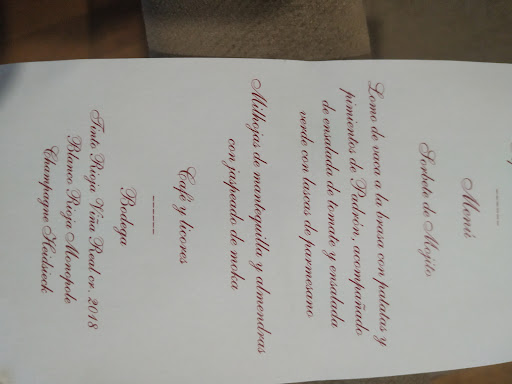 Menú
Sorbete de Mojito
Lomo de vaca a la brasa con patatas y
pimientos de Padrón, acompañado
de ensalada de tomate y ensalada
verde con lascas de parmesano
Milhojas de mantequilla y almendras
con jaspeado de moka
Café y licores
Bodega
Tinto Rioja Viña Real cr. 2018
Blanco Rioja Monopole
Champagne Heidsieck